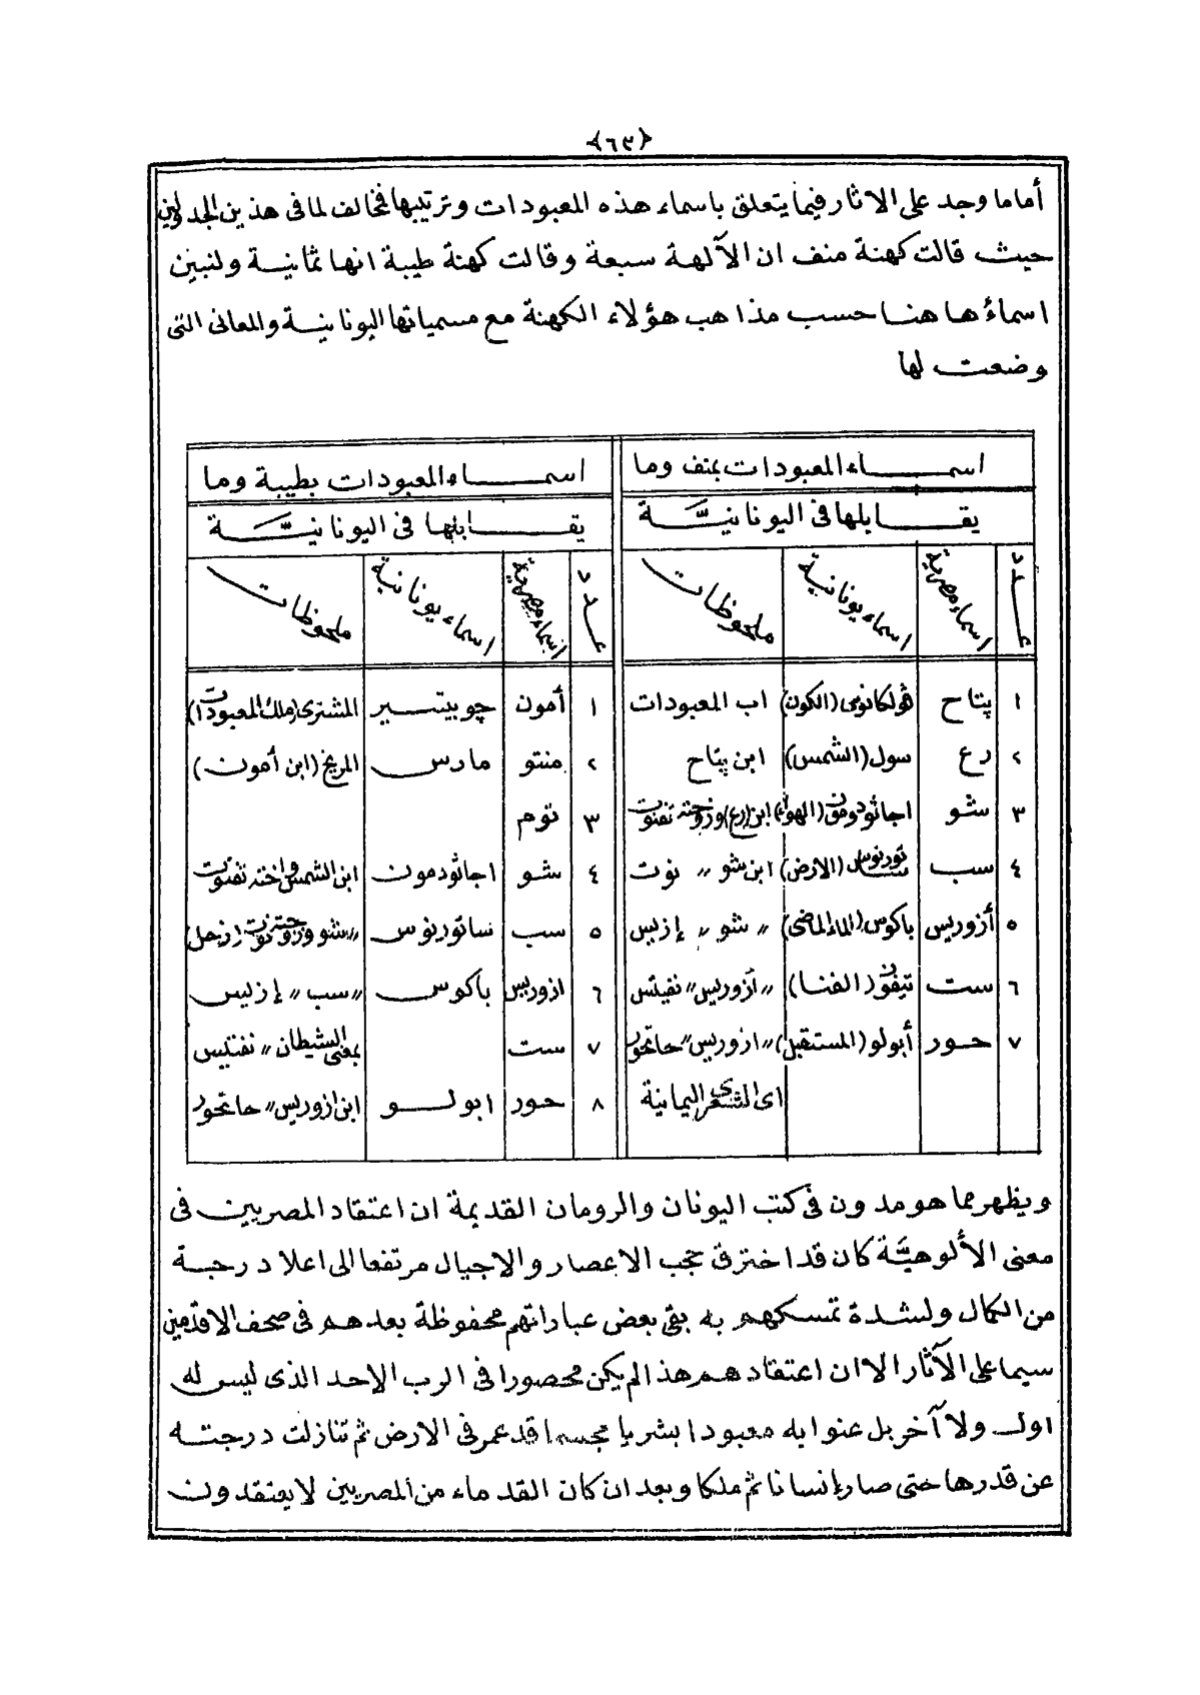 ﴿٦٣﴾
أما ما وجد على الاثار فيما يتعلق باسماء هذه المعبودات وترتيبها فمخالف لما فى هذين الجدولين
حيث قالت كهنة منف ان الآلهة سبعة وقالت كهنة طيبة انها ثمانية ولنبين
اسماؤها هنا حسب مذاهب هؤلاء الكهنة مع مسمياتها اليونانية والمعانى التى
وضعت لها
اسماء المعبودات بمنف وما
يقابلها فى اليونانيَّة
عدد اسماء مصرية اسماء يونانية ملحوظات
١ پتاح ڤولكانوس (الكون) اب المعبودات
٢ رع سول (الشمس) ابن پتاح
٣ شو اجاثودمون (الهواء) ابن (رع) وزوجته تفنوت
٤ سب ساتورنوس (الارض) ابن شو " نوت
٥ أزوريس باكوس (الماء الماضى) " شو " إزيس
٦ ست تيفون (الفنا) " أزوريس " نفيتس
٧ حور أبولو (المستقبل) " ازوريس " حاتحور
اى الشعرى اليمانية
اسماء المعبودات بطيبة وما
يقابلها فى اليونانيَّة
عدد اسماء مصرية اسماء يونانية ملحوظات
١ أمون جوبيتير المشترى (ملك المعبودات)
٢ منتو مارس المريخ (ابن أمون)
٣ توم
٤ شو اجاثودمون ابن الشمس واخته تفنوت
٥ سب ساتورنوس " شو وزوجته نوت (زحل)
٦ ازوريس باكوس " سب " إزيس
٧ ست بمعنى الشيطان " نفتيس
٨ حور ابولو ابن ازوريس " حاتحور
ويظهر مما هو مدون فى كتب اليونان والرومان القديمة ان اعتقاد المصريين فى
معنى الألوهيَّة كان قد اخترق حجب الاعصار والاجيال مرتفعا الى اعلا درجة
من الكمال ولشدة تمسكهم به بقى بعض عباراتهم محفوظة بعدهم فى صحف الاقدمين
سيما على الآثار الا ان اعتقادهم هذا لم يكن محصورا فى الرب الاحد الذى ليس له
اول ولا آخر بل عنوا به معبودا بشريا مجسما قد عمر فى الارض ثم تنازلت درجته
عن قدرها حتى صار إنسانا ثم ملكا وبعد ان كان القدماء من المصريين لا يعتقدون